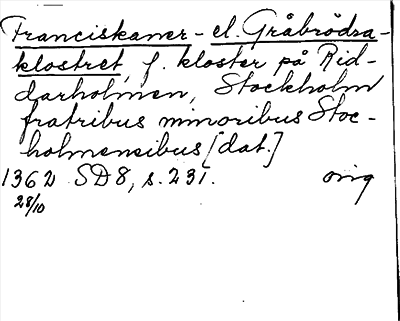 Franciskaner- el. Gråbrödra-
klostret, f. kloster på Rid-
darholmen, Stockholm
fratribus minoribus Stoc-
holmensibus [dat.]
1362 SD8, s. 231. orig
28/10